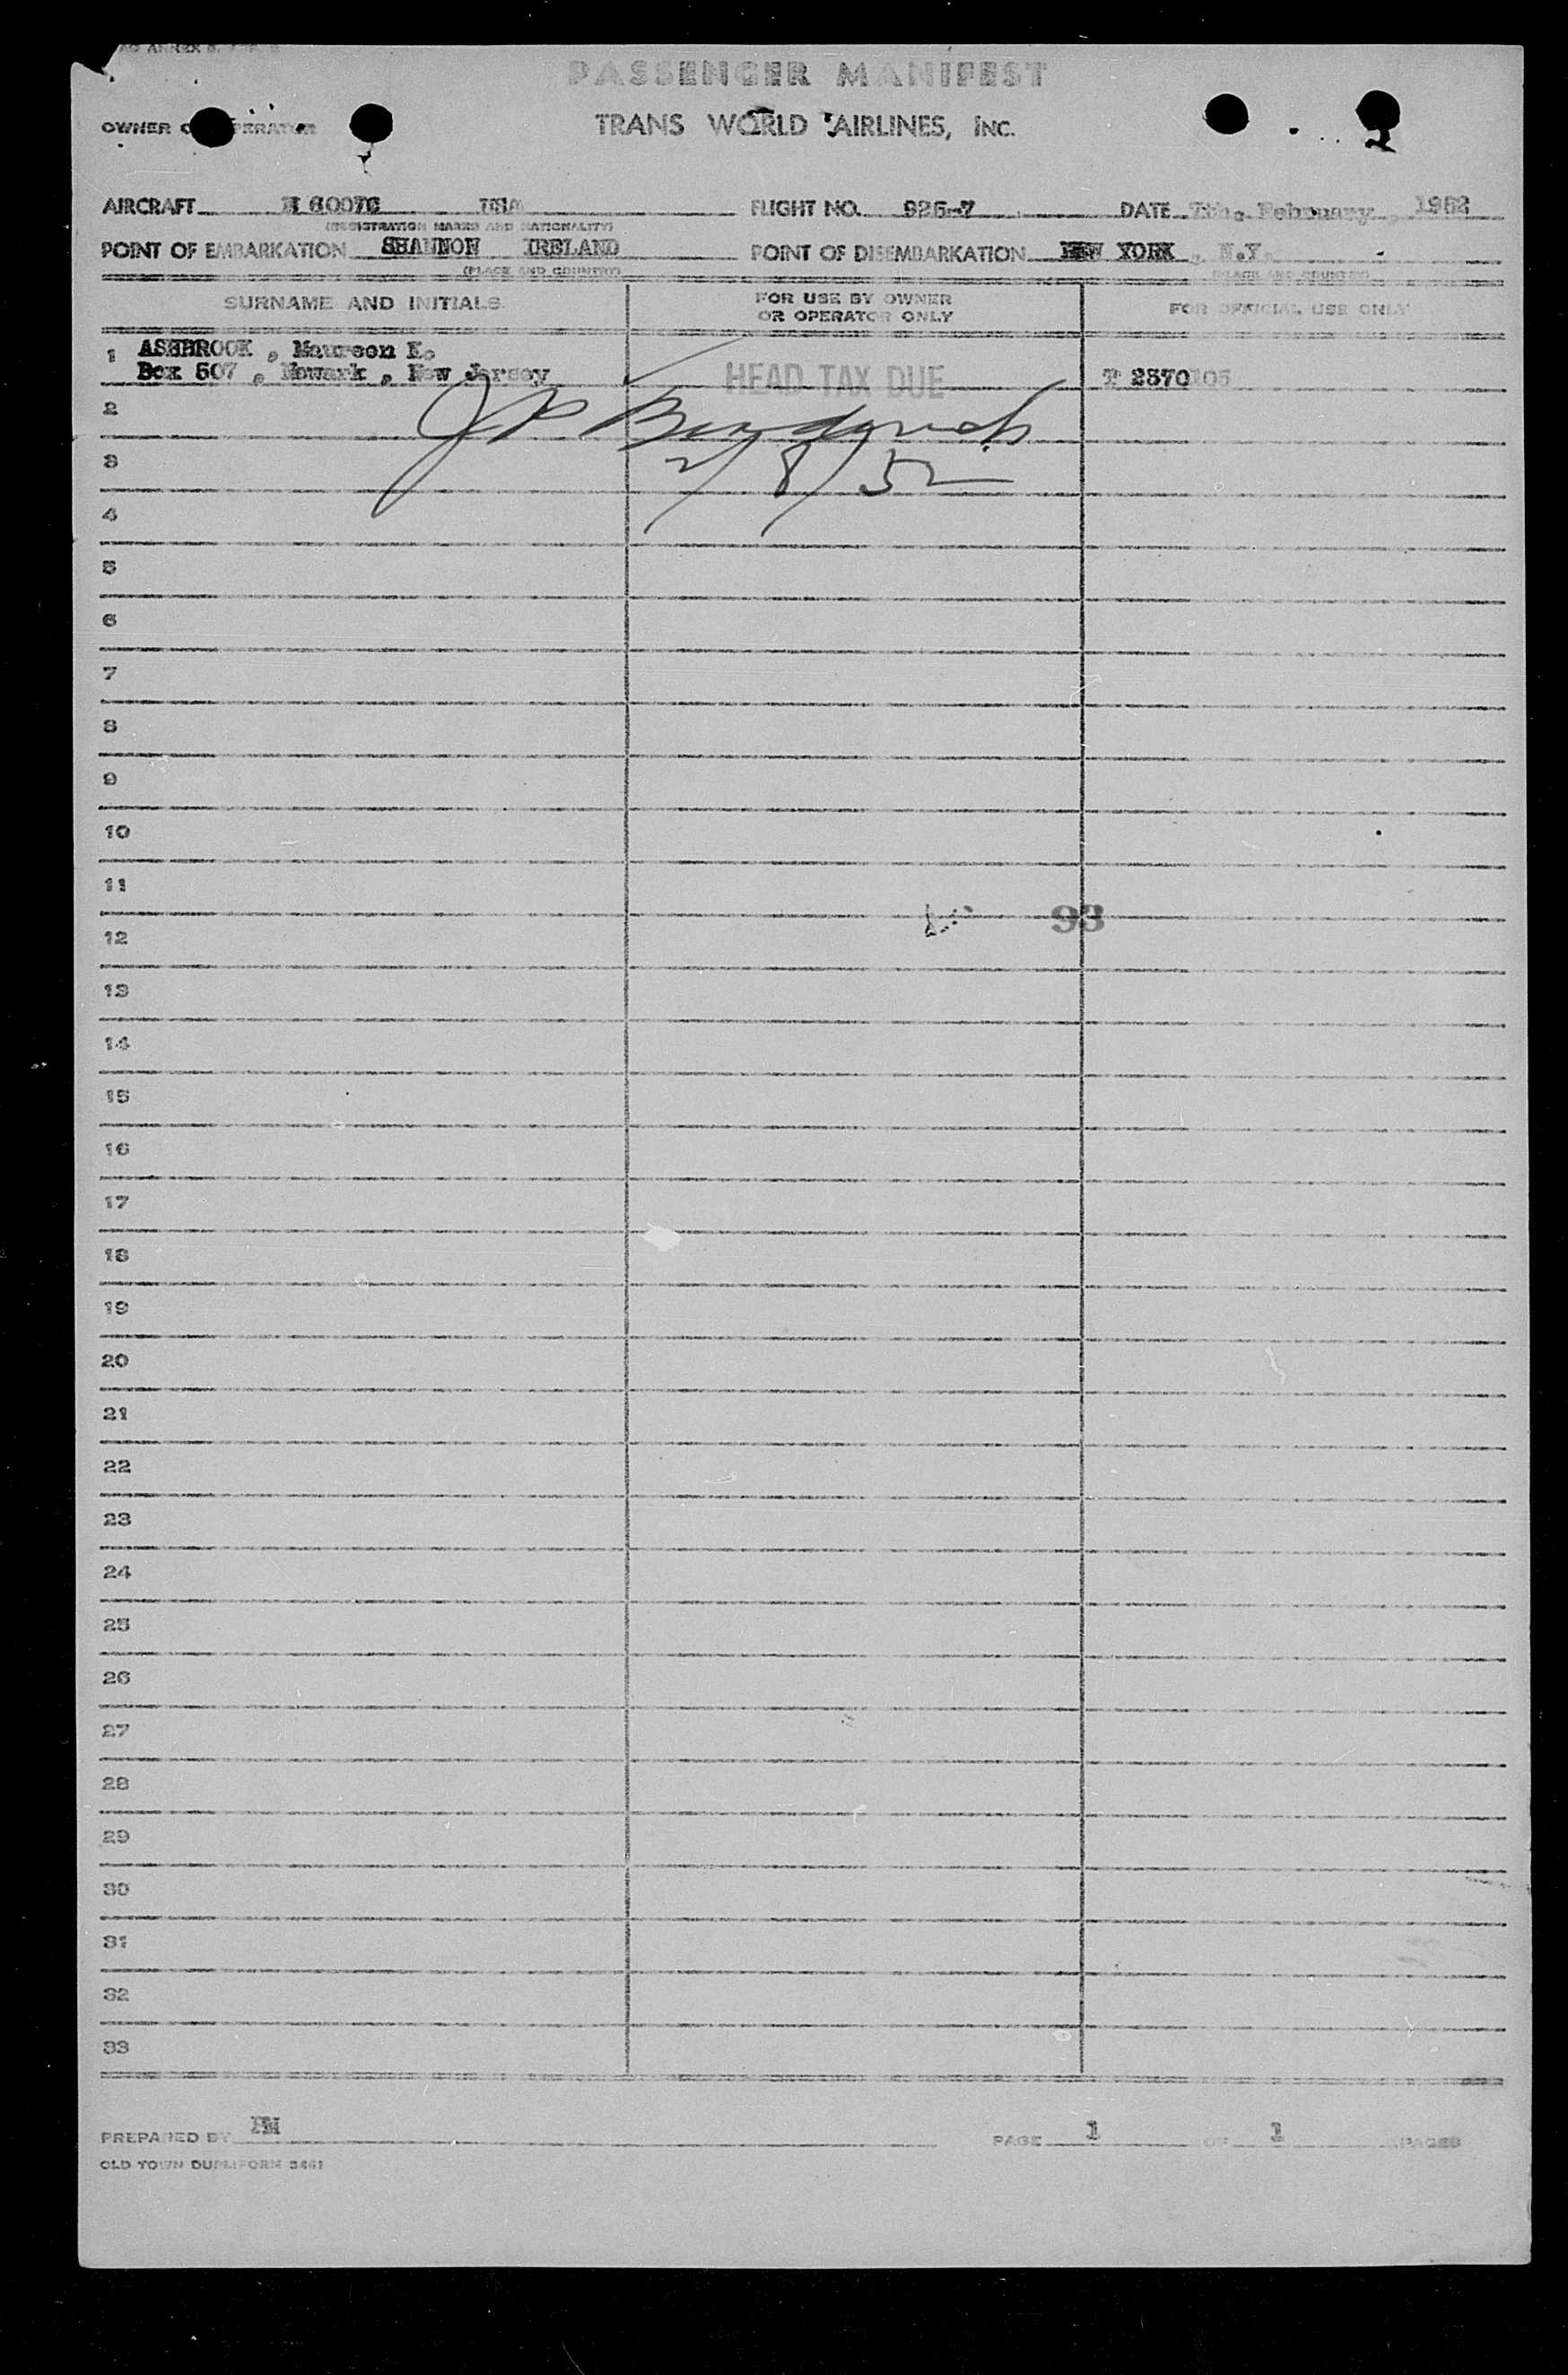 PASSENGER MANIFEST
OWNER OPERATOR TRANS WORLD AIRLINES, INC.
AIRCRAFT N 6007C USA FLIGHT NO. 926-7 DATE 7th. February, 1952
(REGISTRATION MARKS AND NATIONALITY)
POINT OF EMBARKATION SHANNON IRELAND POINT OF DISEMBARKATION NEW YORK, N.Y.
(PLACE AND COUNTRY) (PLACE AND COUNTRY)
SURNAME AND INITIALS FOR USE BY OWNER OR OPERATOR ONLY FOR OFFICIAL USE ONLY
1 ASHBROOK, Maureen E.
Box 507, Newark, New Jersey HEAD TAX DUE T 2570105
2 J P
3 2/8/52
4
5
6
7
8
9
10
11
93
12
13
14
15
16
17
18
19
20
21
22
23
24
25
26
27
28
29
30
31
32
33
PREPARED BY PAGE 1 OF 1 PAGES
OLD TOWN DUPLIFORM 3461